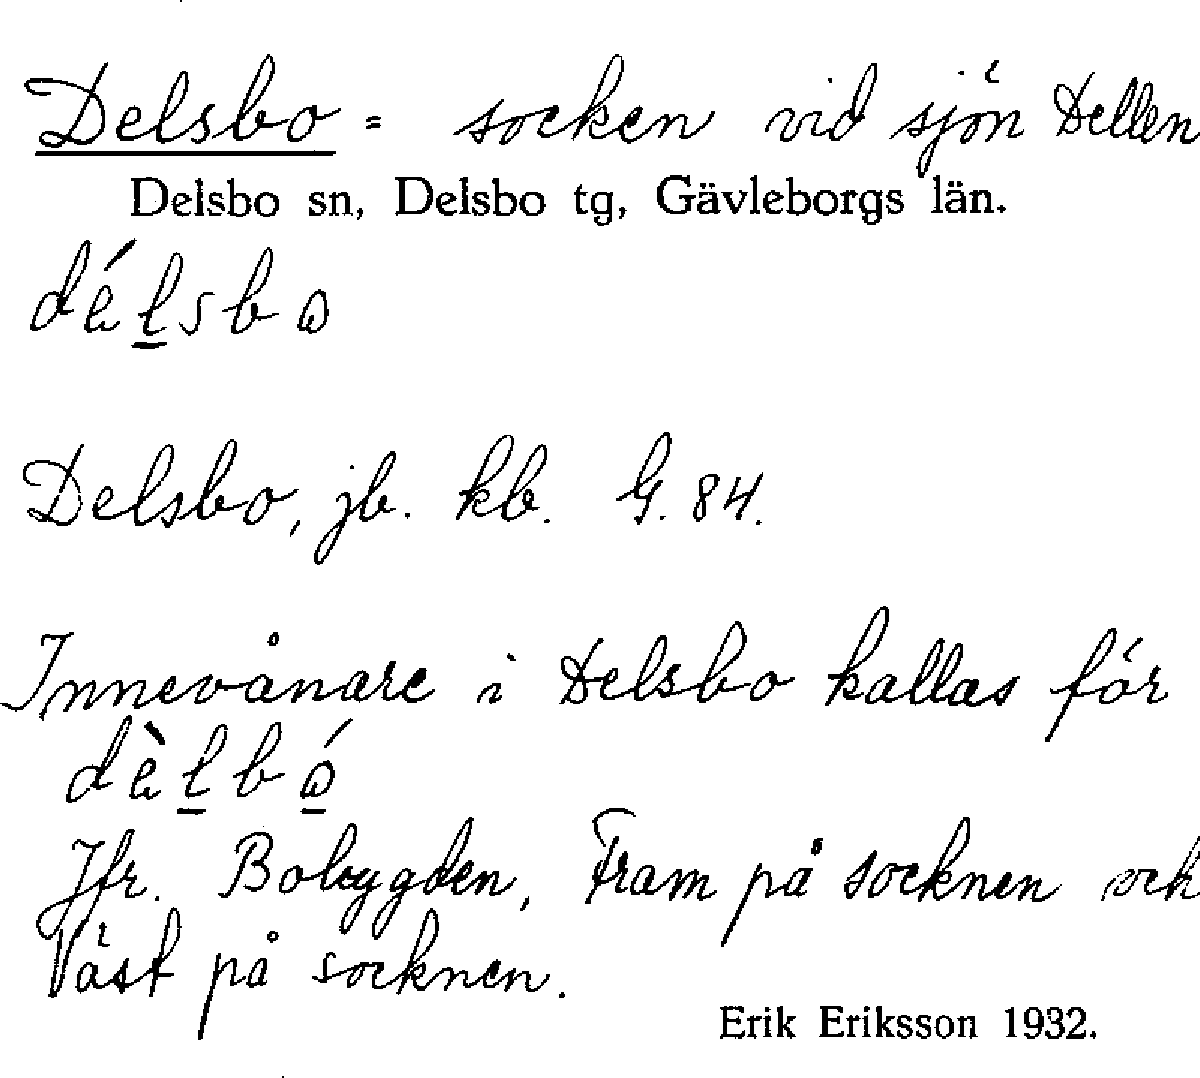 Delsbo = socken vid sjön Dellen
Delsbo sn, Delsbo tg, Gävleborgs län.
délsbo
Delsbo, jb. kb. G. 84.
Innevånare i Delsbo kallas för
dèlbó
Jfr. Bobygden, Fram på socknen och
Väst på socknen.
Erik Eriksson 1932.